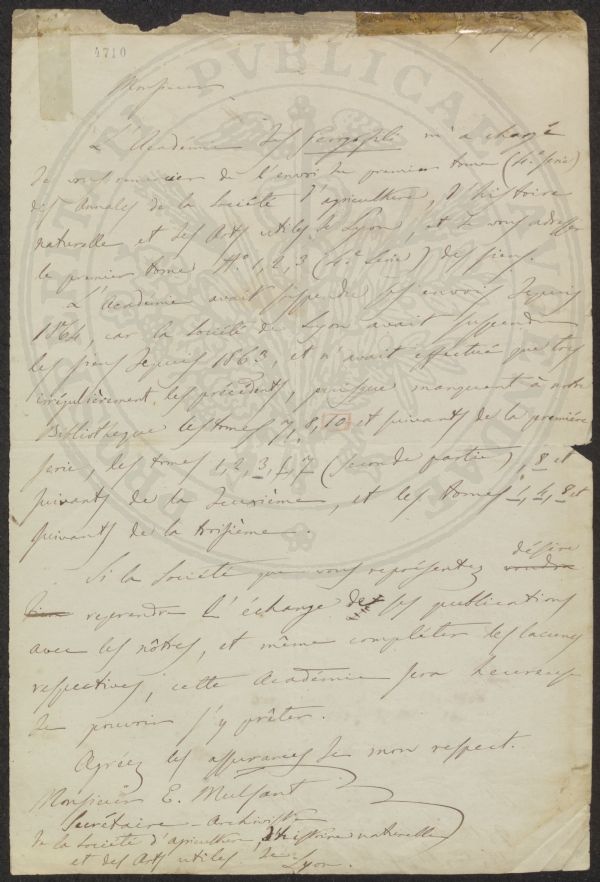 4710
Monsieur
L'Académie des Georgofili m'a chargé
de vous remercier de l'envoi du premier tome (4.e serie)
des Annales de la Société d'agriculture, d'histoire
naturelle et des Arts utiles de Lyon, et de vous adresser
le premier tome N.os 1, 2, 3 (4.e Serie) des siens.
L'Académie avait suspendu ses envois depuis
1864, car la Société de Lyon avait suspendu
les siens depuis 1863, et n'avait effectué que très
irrégulièrement les précédents, puisque manquent à notre
Bibliothèque les tomes 7, 8, 10 et suivants de la première
serie, les tomes 1, 2, 3, 7 (seconde partie), 8 et
suivants de la deuxième, et les tomes 1, 4, 8 et
suivants de la troisième.
désire
Si la Société que vous représentez voudra
reprendre l'échange de ses publications
avec les nôtres, et même compléter les lacunes
respectives, cette Académie sera heureuse
de pouvoir s'y prêter.
Agréez les assurances de mon respect.
Monsieur E. Mulsant
Secrétaire-Archiviste
de la Société d'agriculture, d'histoire naturelle
et des Arts utiles de Lyon.